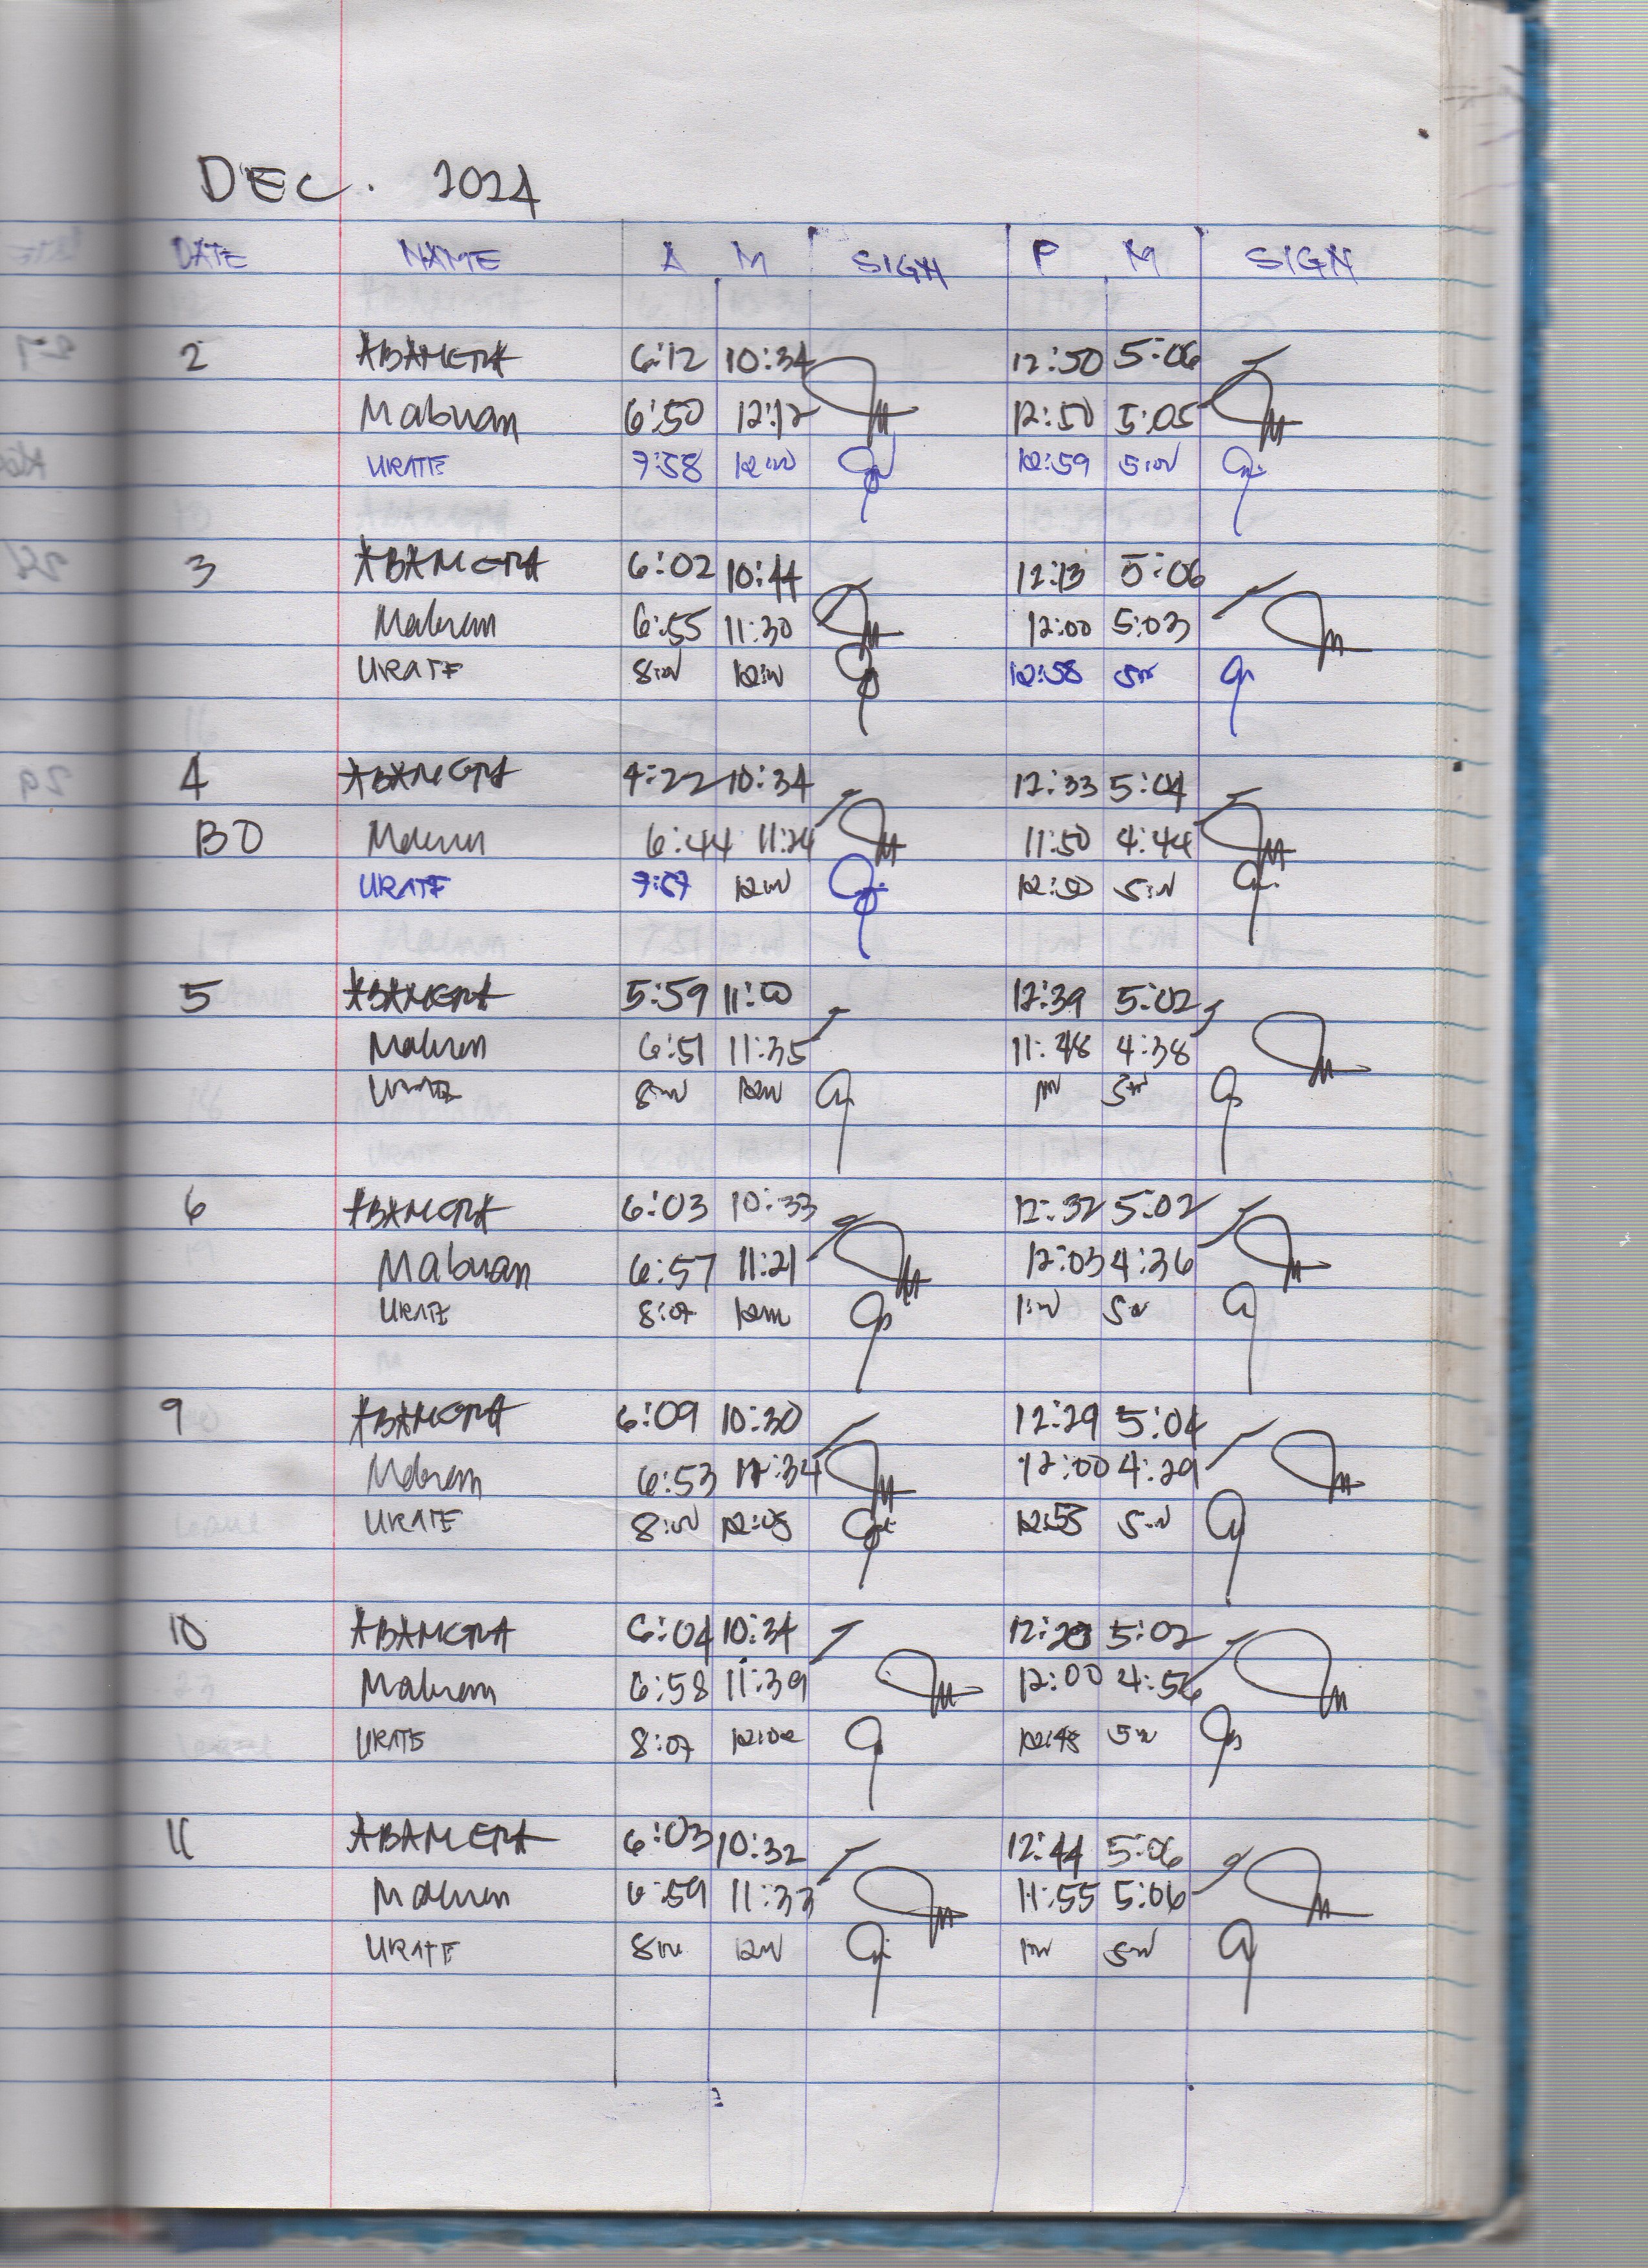 DEC. 2024
DATE NAME A M SIGN P M SIGN
2 ABAMERA 6:12 10:34 12:50 5:06
Mabuan 6:50 12:12 12:50 5:05
URATE 7:58 12:00 12:59 5:00
3 ABAMERA 6:02 10:44 12:13 5:06
Mabuan 6:55 11:30 12:00 5:03
URATE 8:00 12:00 12:58 5:00
4 ABAMERA 4:22 10:34 12:33 5:04
BO Mabuan 6:44 11:24 11:50 4:44
URATE 7:57 12:00 12:50 5:00
5 ABAMERA 5:59 11:00 12:39 5:02
Mabuan 6:51 11:35 11:48 4:38
URATE 8:00 12:00 1:00 5:00
6 ABAMERA 6:03 10:33 12:32 5:02
Mabuan 6:57 11:21 12:03 4:36
URATE 8:07 12:00 1:00 5:00
9 ABAMERA 6:09 10:30 12:29 5:04
Mabuan 6:53 :34 12:00 4:29
URATE 8:00 12:05 12:53 5:00
10 ABAMERA 6:04 10:34 5:02
Mabuan 6:58 11:39 12:00 4:56
URATE 8:07 12:02 12:48 5:00
11 ABAMERA 6:03 10:32 12:44 5:06
Mabuan 6:59 11:33 11:55 5:06
URATE 8:00 12:00 1:00 5:00